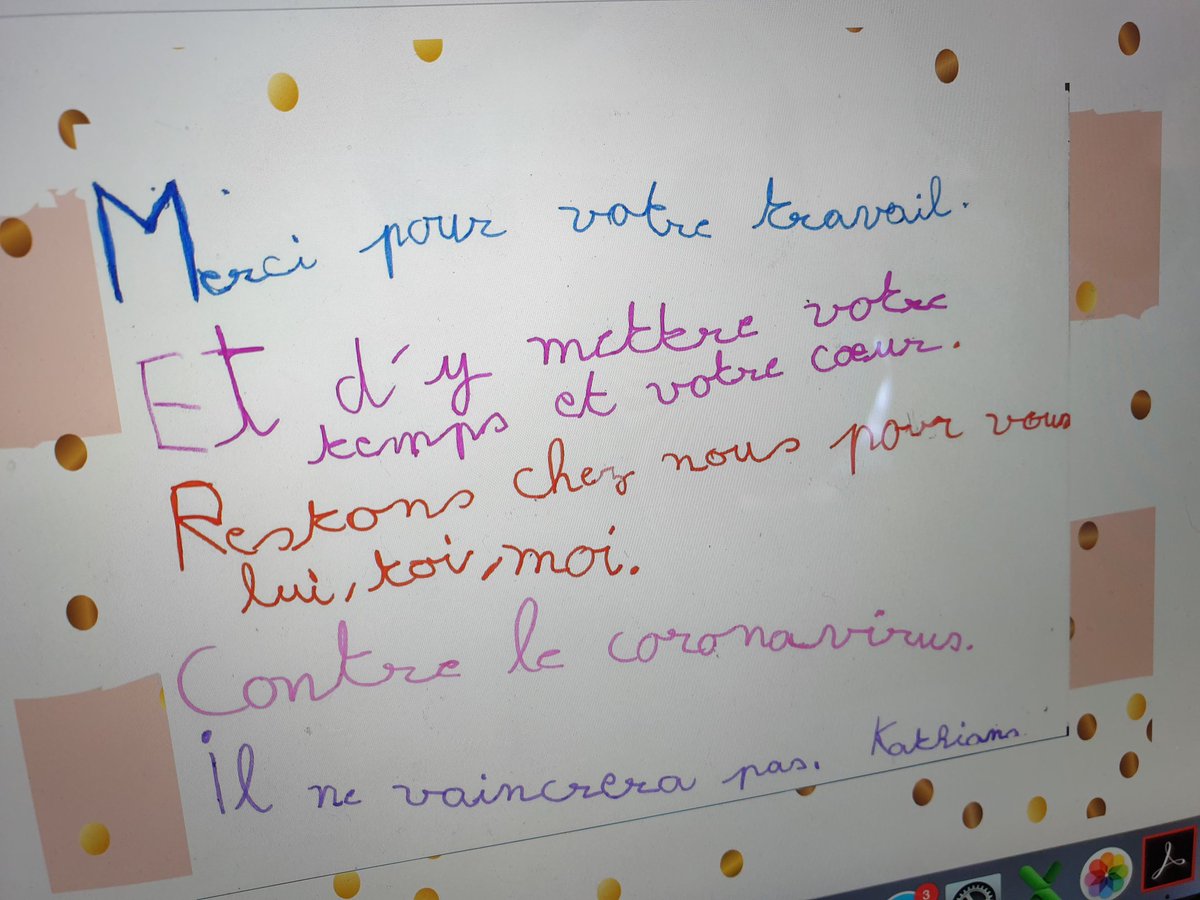 Merci pour votre travail.
Et d'y mettre votre
temps et votre cœur.
Restons chez nous pour vous
lui, toi, moi.
Contre le coronavirus.
Il ne vaincrera pas.
3